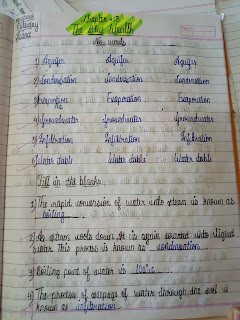 Chapter - 13
The Sky Wealth
Key words
1) Aquifer Aquifer Aquifer
2) Condensation Condensation Condensation
3) Evaporation Evaporation Evaporation
4) Groundwater Groundwater Groundwater
5) Infiltration Infiltration Infiltration
6) Water table Water table Water table
Fill in the blanks
1) The rapid conversion of water into steam is known as
boiling
2) As steam cools down it is again
water. This process is known as condensation
3) Boiling point of water is 100°c
4) The process of seepage of water through the soil is
known as infiltration